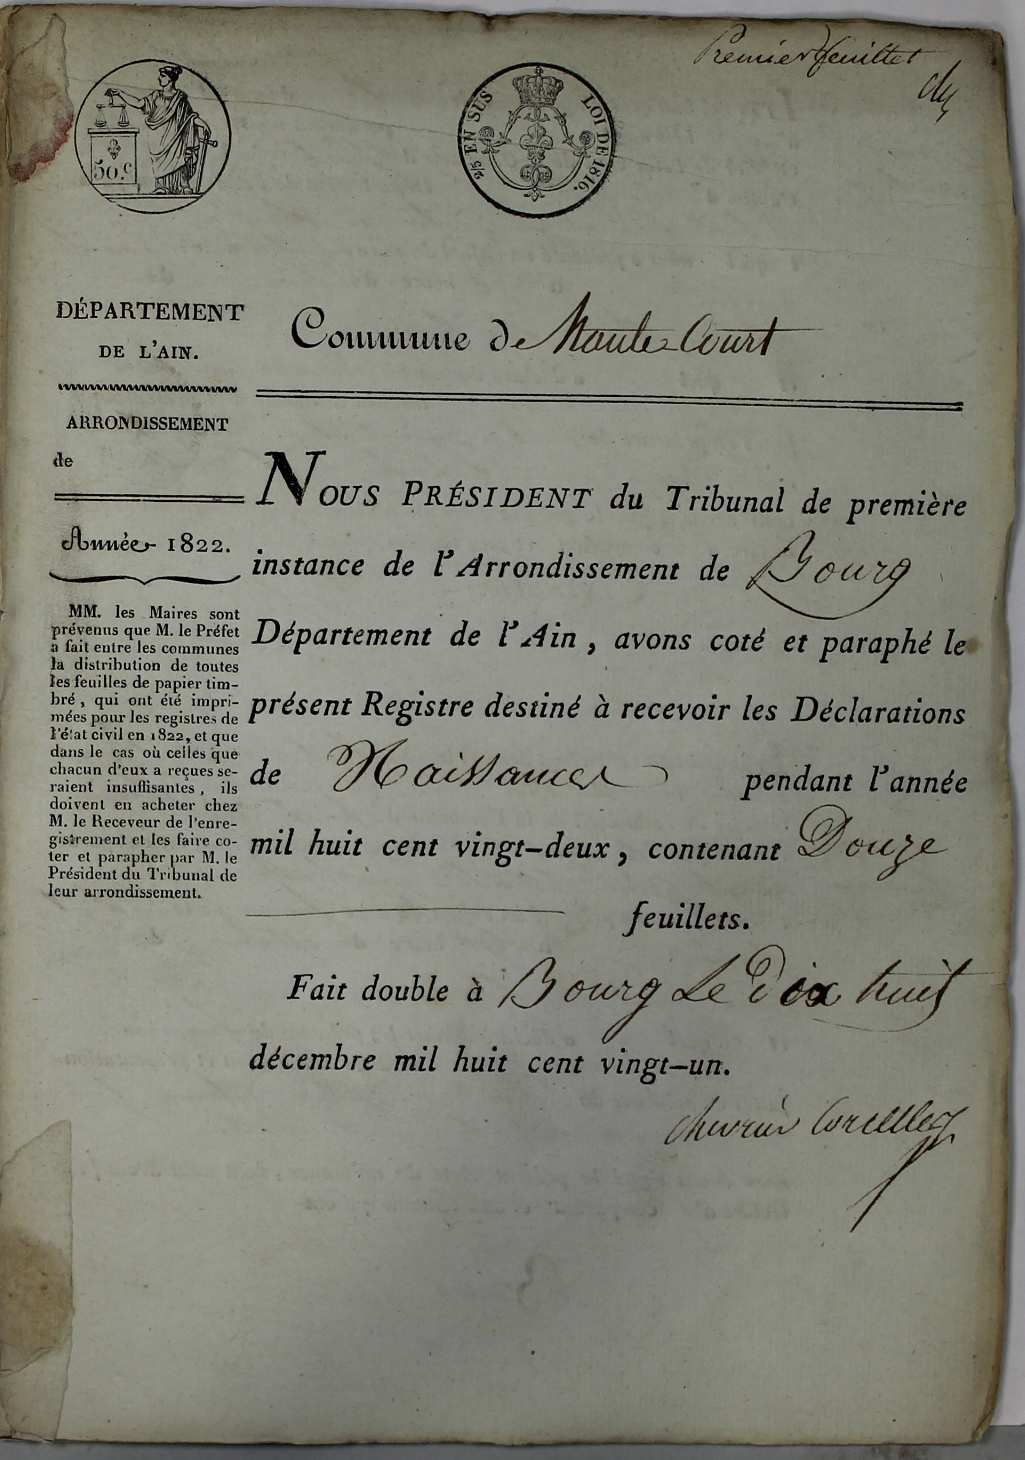 Premier feuillet
50.c
2/5 EN SUS
LOI DE 1816.
DÉPARTEMENT
DE L'AIN.
ARRONDISSEMENT
de
Année 1822.
MM. les Maires sont
prévenus que M. le Préfet
a fait entre les communes
la distribution de toutes
les feuilles de papier tim-
bré, qui ont été impri-
mées pour les registres de
l'état civil en 1822, et que
dans le cas où celles que
chacun d'eux a reçues se-
raient insuffisantes, ils
doivent en acheter chez
M. le Receveur de l'enre-
gistrement et les faire co-
ter et parapher par M. le
Président du Tribunal de
leur arrondissement.
Commune de Haute Court
NOUS PRÉSIDENT du Tribunal de première
instance de l'Arrondissement de Bourg
Département de l'Ain, avons coté et paraphé le
présent Registre destiné à recevoir les Déclarations
de Naissances pendant l'année
mil huit cent vingt-deux, contenant Douze
feuillets.
Fait double à Bourg Le Dix huit
décembre mil huit cent vingt-un.